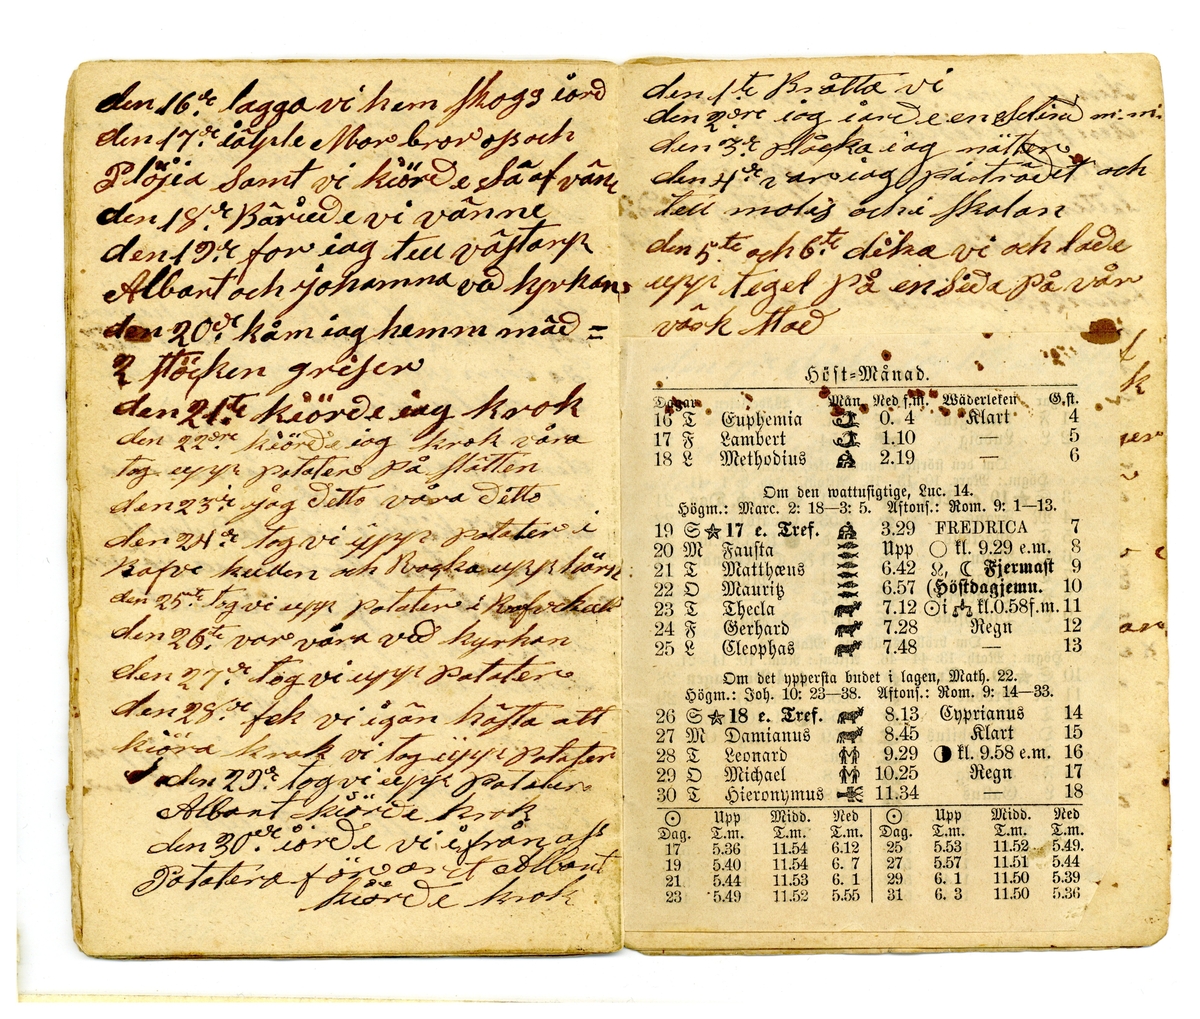 den 16de lagga vi hem skogs iord
den 17de iälpte Mor bror oss och
Plöjia samt vi kiörde Så af vän
den 18de Bärjede vi vänne
den 19de for iag till västarp
Albart och johanna va kyrkan
den 20de kåm iag hemm mäd =
2 stöcken griser
den 21te kiörde iag krok
den 22dre kiörde iag krok våra
tog upp potater på slätten
den 23de jag detto våra detto
den 24de tog vi upp potater i
Kafve kullen och Rogka upp hörn
den 25te tog vi upp potater i
den 26te var våra ved kyrkan
den 27de tog vi upp potater
den 28de fek vi igän hästa att
kiöra krok vi tog upp potater
den 29de tog vi upp potater
Albant kiörde krok
den 30de iorde vi ifrån oss
Potatera för aret Albant
kiörde krok
den 1te Bråtta vi
den 2dre iag iorde en m: m:
den 3de plåcka iag nätter
den 4de var iag på och
till motis och i skolan
den 5te och 6te dika vi och lade
upp tegel på en Seda på vår
väsk Mad
Höst=Månad.
Dagar Mån. Ned f.m. Wäderleken G.st.
16 T Euphemia 0. 4 Klart 4
17 F Lambert 1.10 — 5
18 L Methodius 2.19 — 6
Om den wattusigtige, Luc. 14.
Högm.: Marc. 2: 18—3: 5. Aftons.: Rom. 9: 1—13.
19 S ☆ 17 e. Tref. 3.29 FREDRICA 7
20 M Fausta Upp ○ kl. 9.29 e.m. 8
21 T Matthæus 6.42 ☊, ☾ Fjermast 9
22 O Mauritz 6.57 (Höstdagjemn. 10
23 T Thecla 7.12 ☉ i ♎ kl.0.58 f.m. 11
24 F Gerhard 7.28 Regn 12
25 L Cleophas 7.48 — 13
Om det yppersta budet i lagen, Math. 22.
Högm.: Joh. 10: 23—38. Aftons.: Rom. 9: 14—33.
26 S ☆ 18 e. Tref. 8.13 Cyprianus 14
27 M Damianus 8.45 Klart 15
28 T Leonard 9.29 ◑ kl. 9.58 e.m. 16
29 O Michael 10.25 Regn 17
30 T Hieronymus 11.34 — 18
☉ Upp Midd. Ned ☉ Upp Midd. Ned
Dag. T.m. T.m. T.m. Dag. T.m. T.m. T.m.
17 5.36 11.54 6.12 25 5.53 11.52 5.49.
19 5.40 11.54 6. 7 27 5.57 11.51 5.44
21 5.44 11.53 6. 1 29 6. 1 11.50 5.39
23 5.49 11.52 5.55 31 6. 3 11.50 5.36